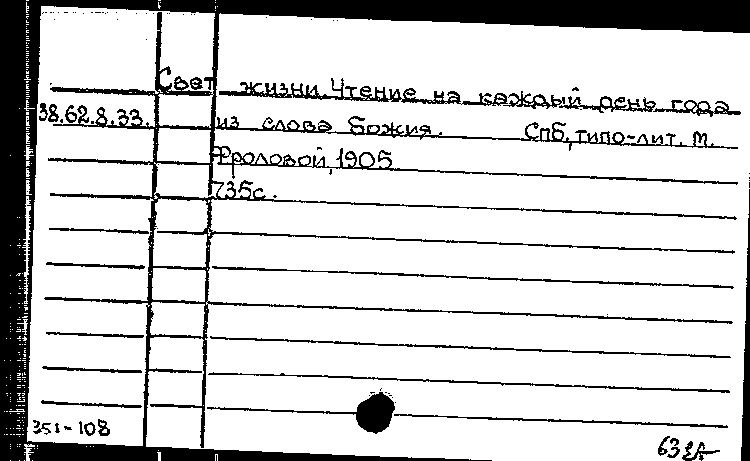 Свет жизни. Чтение на каждый день года
38.62.8.33. из слова Божия. Спб, типо-лит. М.
Фроловой, 1905
735с.
351-108